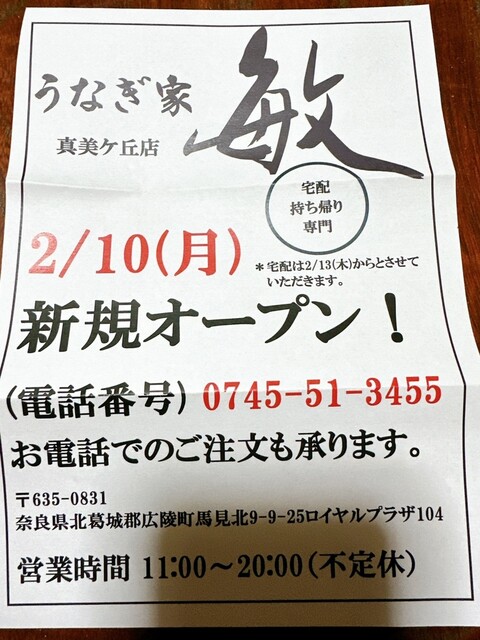 うなぎ家
敏
真美ケ丘店
宅配
持ち帰り
専門
2/10(月)
＊宅配は2/13(木)からとさせて
いただきます。
新規オープン！
(電話番号) 0745-51-3455
お電話でのご注文も承ります。
〒635-0831
奈良県北葛城郡広陵町馬見北9-9-25ロイヤルプラザ104
営業時間 11:00～20:00(不定休)